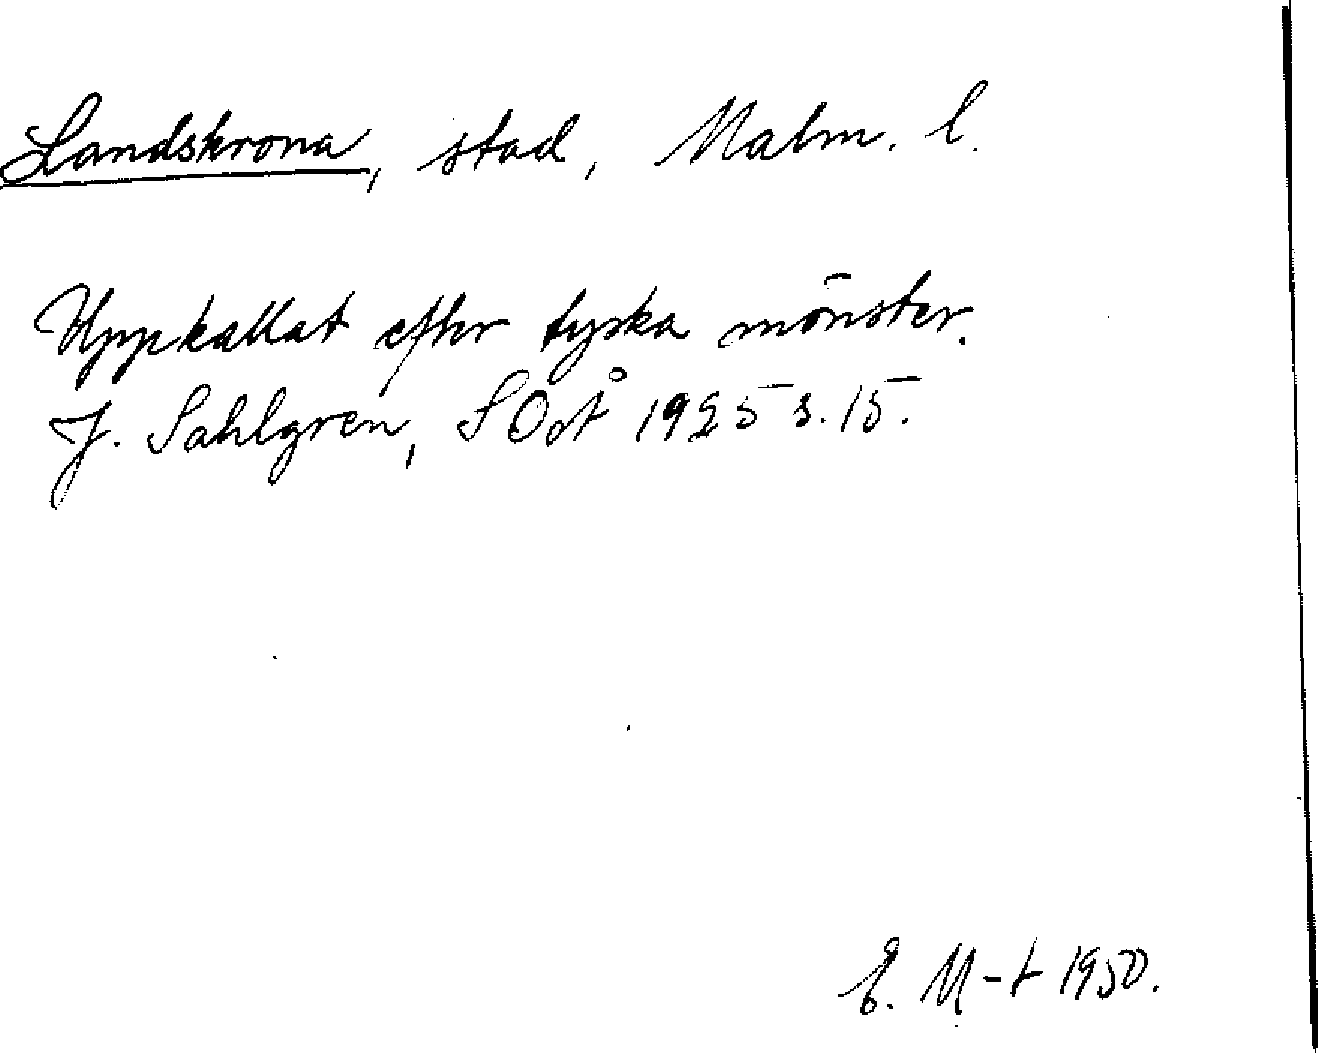 Landskrona, stad, Malm. l.
Uppkallat efter tyska mönster.
J. Sahlgren, SOÅ 1925 s. 15.
E. M-t 1950.